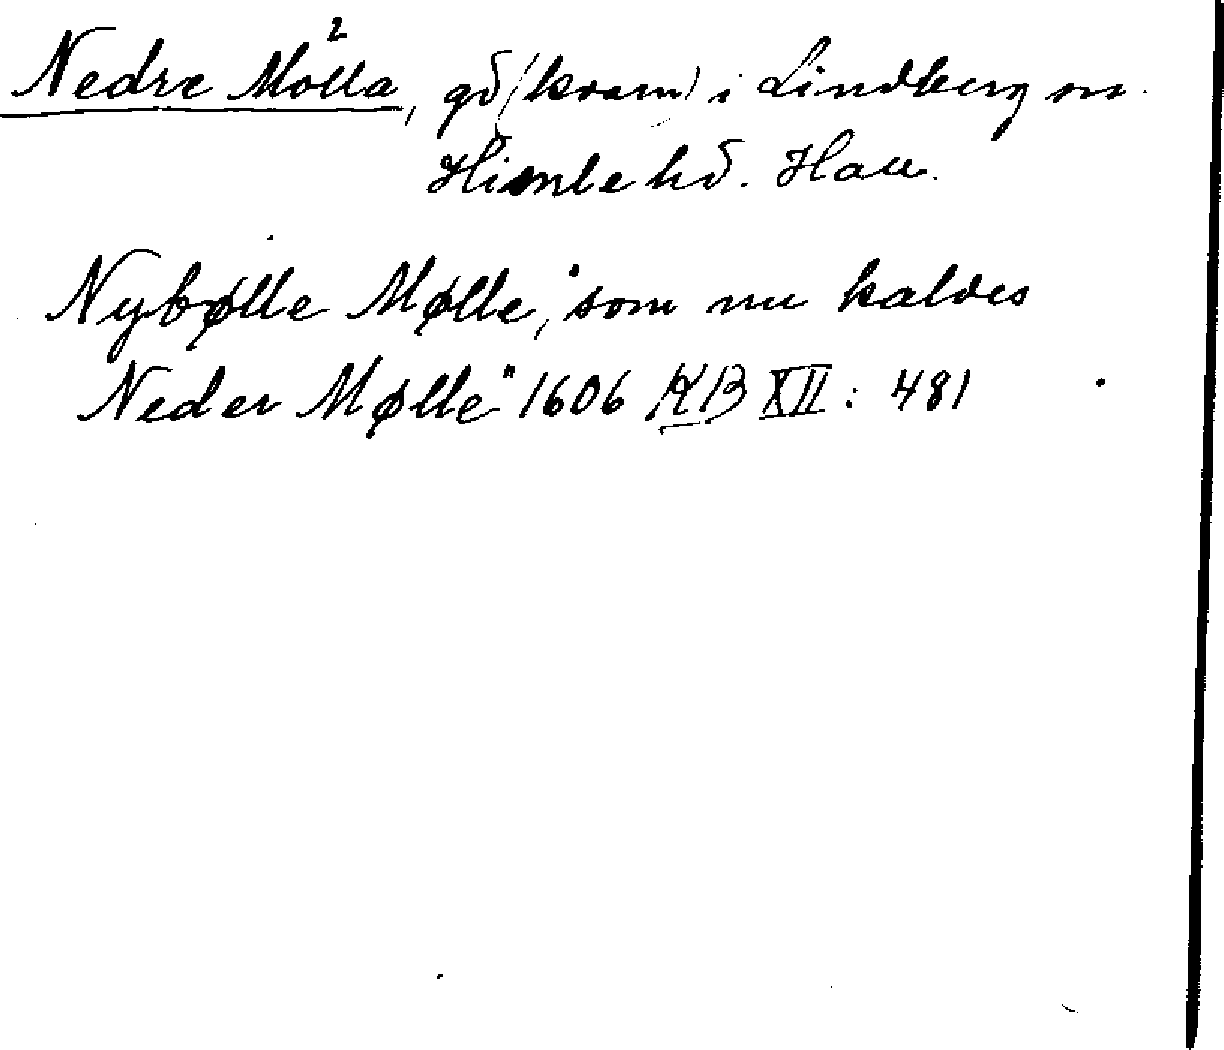 Nedre Mölla, gd (kvarn) i Lindberg sn.
Himle hd. Hall.
Nybølle Mølle, "som nu kaldes
Neder Mølle" 1606 KB XII: 481